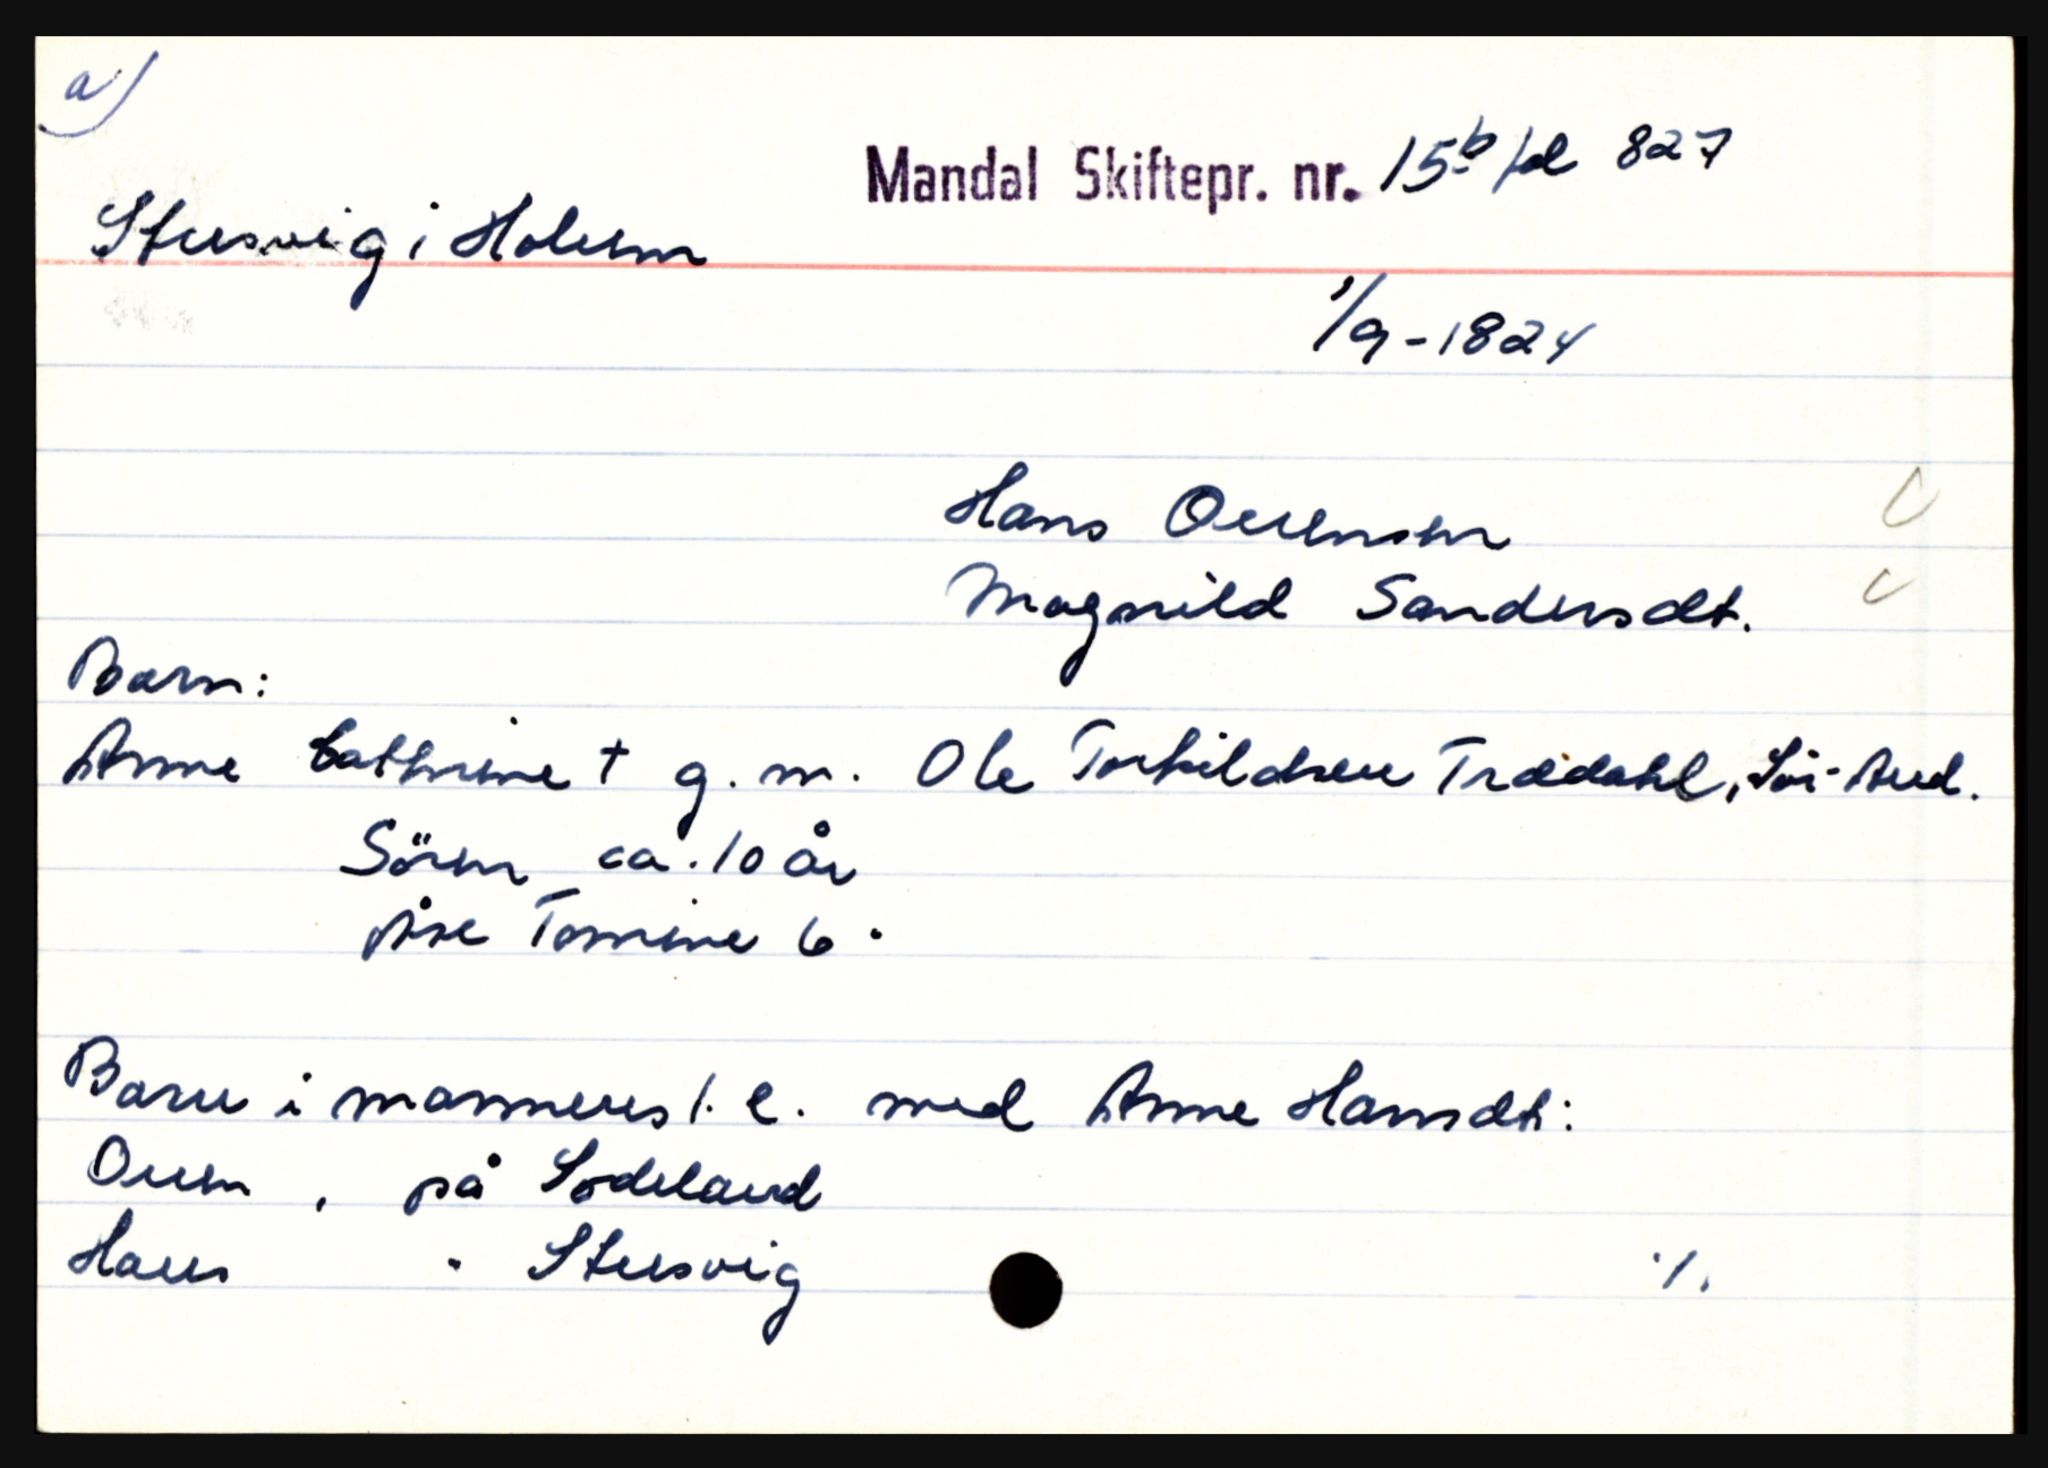 a)
Mandal Skiftepr. nr. 15b fol 827
Stusvig i Holum
1/9-1824
Hans Ouensen
Magnild Sandersdt.
Barn:
Anne Cathrine † g. m. Ole Torkildsen Trædahl, Sör-Aud.
Sören ca. 10 år
Åse Tomine 6 "
Barn i mannens 1. e. med Anne Hansdt:
Ouen, på Sodeland
Hans " Stusvig
./.